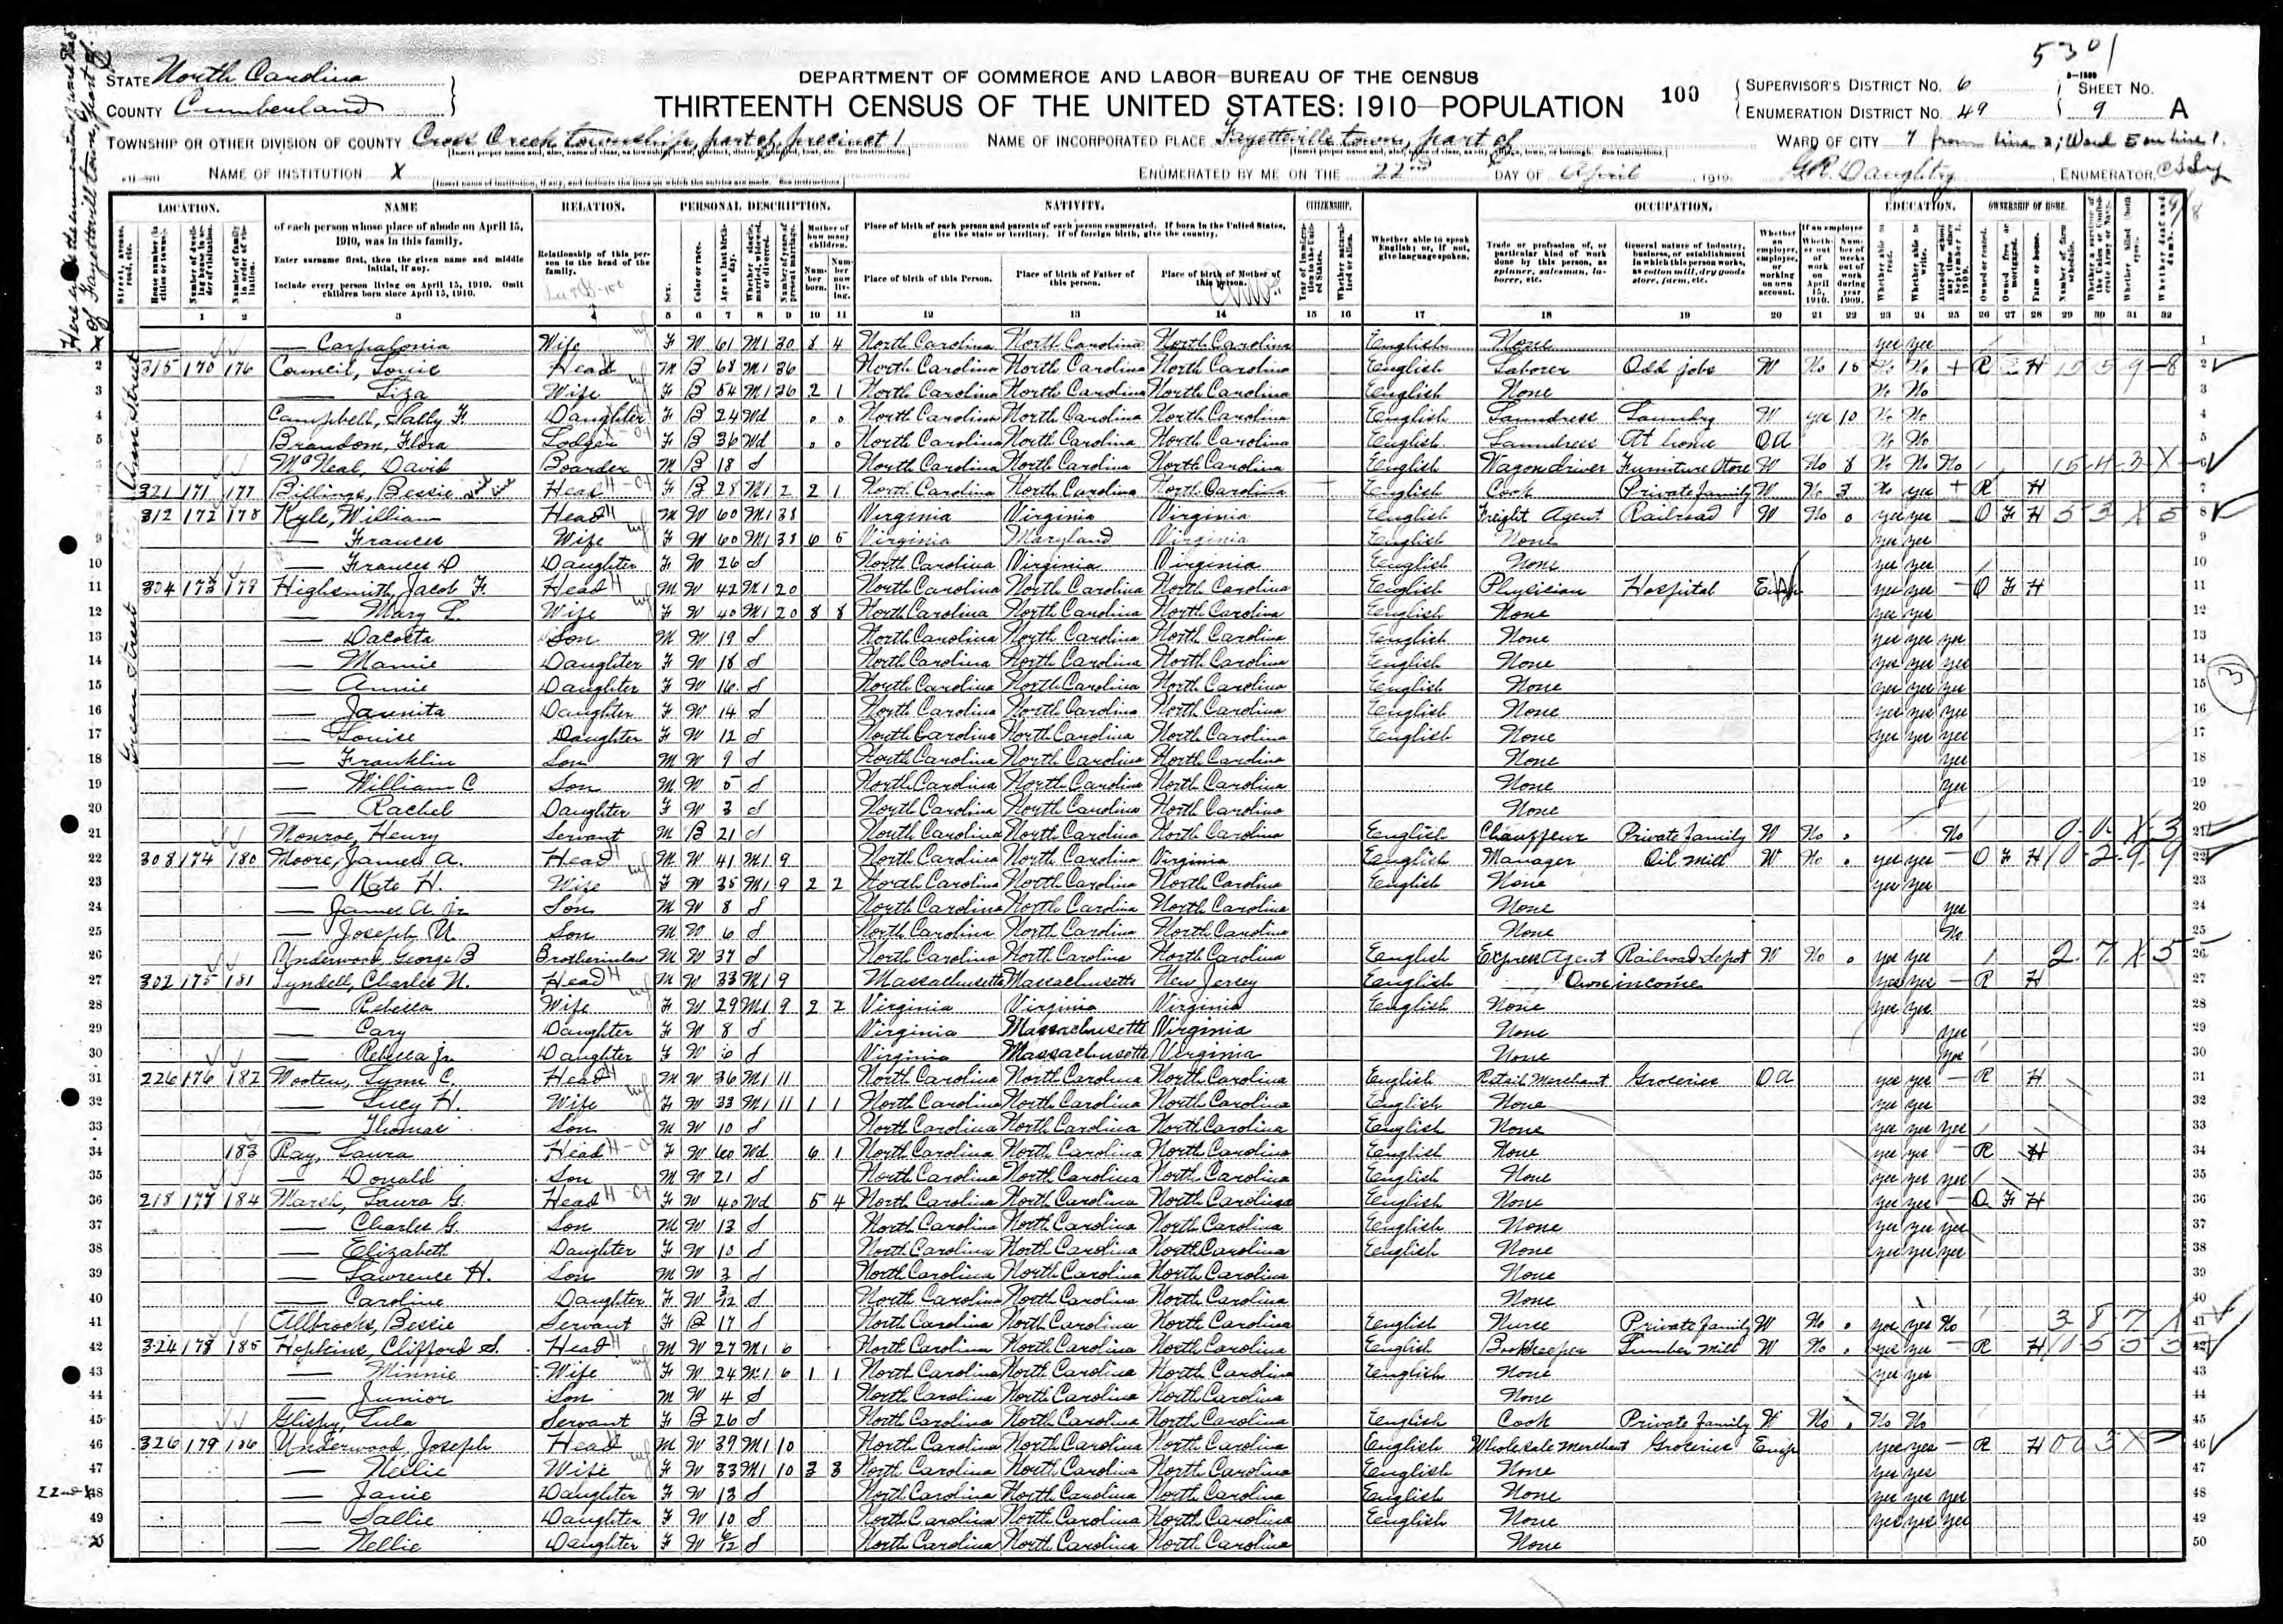 5301
STATE North Carolina
COUNTY Cumberland
DEPARTMENT OF COMMERCE AND LABOR—BUREAU OF THE CENSUS
THIRTEENTH CENSUS OF THE UNITED STATES: 1910—POPULATION
100
SUPERVISOR'S DISTRICT No. 6
ENUMERATION DISTRICT No. 49
SHEET No. 9 A
TOWNSHIP OR OTHER DIVISION OF COUNTY Cross Creek township, part of precinct 1
NAME OF INCORPORATED PLACE Fayetteville town, part of
WARD OF CITY 7 from line 2; Ward 5 on line 1.
NAME OF INSTITUTION X
ENUMERATED BY ME ON THE 22nd DAY OF April, 1910.
ENUMERATOR
LOCATION. NAME RELATION. PERSONAL DESCRIPTION. NATIVITY. CITIZENSHIP. OCCUPATION. EDUCATION. OWNERSHIP OF HOME.
of each person whose place of abode on April 15, 1910, was in this family.
Enter surname first, then the given name and middle initial, if any.
Include every person living on April 15, 1910. Omit children born since April 15, 1910.
Relationship of this person to the head of the family.
Place of birth of each person and parents of each person enumerated. If born in the United States, give the state or territory. If of foreign birth, give the country.
Place of birth of this Person. Place of birth of Father of this person. Place of birth of Mother of this person.
Whether able to speak English; or, if not, give language spoken.
Trade or profession of, or particular kind of work done by this person, as spinner, salesman, laborer, etc.
General nature of industry, business, or establishment in which this person works, as cotton mill, dry goods store, farm, etc.
1 2 3 4 5 6 7 8 9 10 11 12 13 14 15 16 17 18 19 20 21 22 23 24 25 26 27 28 29 30 31 32
Ann Street
Green Street
1 — Wife F W 61 M1 30 8 4 North Carolina North Carolina North Carolina English None yes yes
2 315 170 176 Council, Louie Head M B 68 M1 36 North Carolina North Carolina North Carolina English Laborer Odd jobs W No No No R H
3 — Liza Wife F B 54 M1 36 2 1 North Carolina North Carolina North Carolina English None No No
4 Campbell, Sally F. Daughter F B 24 Wd 0 0 North Carolina North Carolina North Carolina English Laundress Laundry W yes 10 No No
5 Brandom, Flora Lodger F B 36 Wd 0 0 North Carolina North Carolina North Carolina English Laundress At home OA No No
6 McNeal, David Boarder M B 18 S North Carolina North Carolina North Carolina English Wagon driver Furniture Store W No 8 No No No
7 321 171 177 Billings, Bessie Head F B 28 M1 2 2 1 North Carolina North Carolina North Carolina English Cook Private family W No No yes R H
8 312 172 178 Kyle, William Head M W 60 M1 38 Virginia Virginia Virginia English Freight Agent Railroad W No 0 yes yes — O F H
9 — Frances Wife F W 60 M1 38 6 5 Virginia Maryland Virginia English None yes yes
10 — Frances D Daughter F W 26 S North Carolina Virginia Virginia English None yes yes
11 304 173 179 Highsmith, Jacob F. Head M W 42 M1 20 North Carolina North Carolina North Carolina English Physician Hospital Emp yes yes — O F H
12 — Mary L. Wife F W 40 M1 20 8 8 North Carolina North Carolina North Carolina English None yes yes
13 — Dacosta Son M W 19 S North Carolina North Carolina North Carolina English None yes yes yes
14 — Mamie Daughter F W 18 S North Carolina North Carolina North Carolina English None yes yes yes
15 — Annie Daughter F W 16 S North Carolina North Carolina North Carolina English None yes yes yes
16 — Jaunita Daughter F W 14 S North Carolina North Carolina North Carolina English None yes yes yes
17 — Louise Daughter F W 12 S North Carolina North Carolina North Carolina English None yes yes yes
18 — Franklin Son M W 9 S North Carolina North Carolina North Carolina None yes
19 — William C Son M W 5 S North Carolina North Carolina North Carolina None yes
20 — Rachel Daughter F W 3 S North Carolina North Carolina North Carolina None
21 Monroe, Henry Servant M B 21 S North Carolina North Carolina North Carolina English Chauffeur Private family W No 0 No
22 308 174 180 Moore, James A. Head M W 41 M1 9 North Carolina North Carolina Virginia English Manager Oil mill W No 0 yes yes — O F H
23 — Kate H. Wife F W 35 M1 9 2 2 North Carolina North Carolina North Carolina English None yes yes
24 — James A Jr Son M W 8 S North Carolina North Carolina North Carolina None yes
25 — Joseph U. Son M W 6 S North Carolina North Carolina North Carolina None No
26 Underwood, George B Brotherinlaw M W 37 S North Carolina North Carolina North Carolina English Express Agent Railroad depot W No 0 yes yes
27 302 175 181 Tyndell, Charles N. Head M W 33 M1 9 Massachusetts Massachusetts New Jersey English Own income yes yes — R H
28 — Rebecca Wife F W 29 M1 9 2 2 Virginia Virginia Virginia English None yes yes
29 — Cary Daughter F W 8 S Virginia Massachusetts Virginia None yes
30 — Rebecca Jr. Daughter F W 6 S Virginia Massachusetts Virginia None yes
31 226 176 182 Wooten, Lynn C. Head M W 36 M1 11 North Carolina North Carolina North Carolina English Retail Merchant Groceries OA yes yes — R H
32 — Lucy H. Wife F W 33 M1 11 1 1 North Carolina North Carolina North Carolina English None yes yes
33 — Thomas Son M W 10 S North Carolina North Carolina North Carolina English None yes yes yes
34 183 Ray, Laura Head F W 60 Wd 6 1 North Carolina North Carolina North Carolina English None yes yes R H
35 — Donald Son M W 21 S North Carolina North Carolina North Carolina English None yes yes yes
36 218 177 184 Marsh, Laura G. Head F W 40 Wd 5 4 North Carolina North Carolina North Carolina English None yes yes — O F H
37 — Charles G. Son M W 13 S North Carolina North Carolina North Carolina English None yes yes yes
38 — Elizabeth Daughter F W 10 S North Carolina North Carolina North Carolina English None yes yes yes
39 — Lawrence H. Son M W 3 S North Carolina North Carolina North Carolina None
40 — Caroline Daughter F W 3/12 S North Carolina North Carolina North Carolina None
41 Allbrooks, Bessie Servant F B 17 S North Carolina North Carolina North Carolina English Nurse Private family W No 0 yes yes No
42 324 178 185 Hopkins, Clifford S. Head M W 27 M1 6 North Carolina North Carolina North Carolina English Bookkeeper Lumber mill W No 0 yes yes — R H
43 — Minnie Wife F W 24 M1 6 1 1 North Carolina North Carolina North Carolina English None yes yes
44 — Junior Son M W 4 S North Carolina North Carolina North Carolina None
45 Glispy, Lula Servant F B 26 S North Carolina North Carolina North Carolina English Cook Private family W No 0 No No
46 326 179 186 Underwood, Joseph Head M W 39 M1 10 North Carolina North Carolina North Carolina English Wholesale merchant Groceries Emp yes yes — R H
47 — Nellie Wife F W 33 M1 10 3 3 North Carolina North Carolina North Carolina English None yes yes
48 — Janie Daughter F W 13 S North Carolina North Carolina North Carolina English None yes yes yes
49 — Sallie Daughter F W 10 S North Carolina North Carolina North Carolina English None yes yes yes
50 — Nellie Daughter F W 6/12 S North Carolina North Carolina North Carolina None